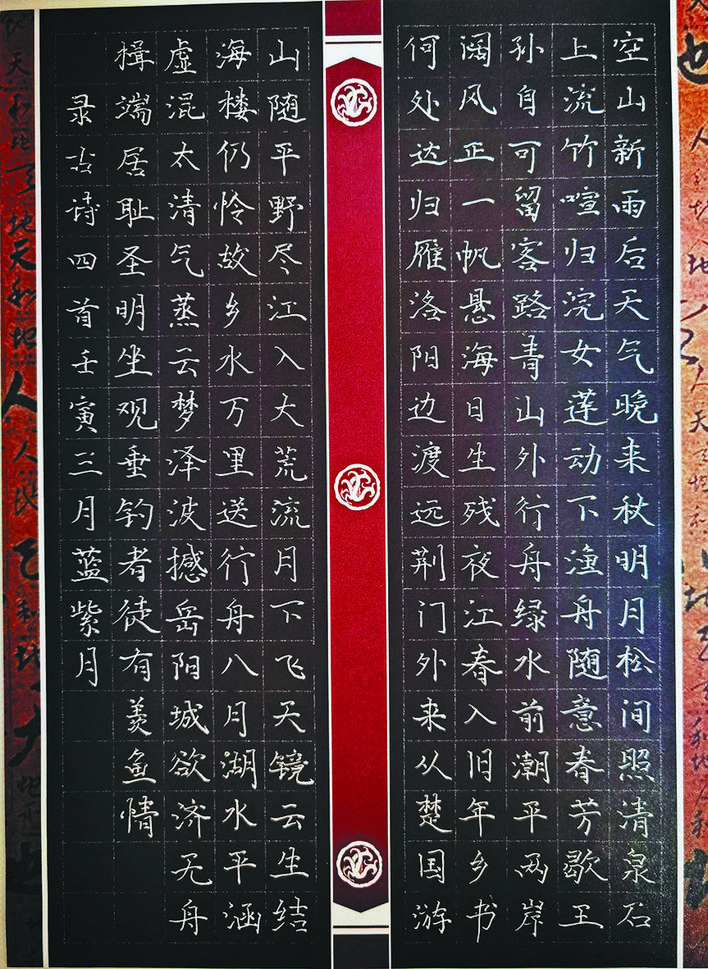 空山新雨后天气晚来秋明月松间照清泉石
上流竹喧归浣女莲动下渔舟随意春芳歇王
孙自可留客路青山外行舟绿水前潮平两岸
阔风正一帆悬海日生残夜江春入旧年乡书
何处达归雁洛阳边渡远荆门外来从楚国游
山随平野尽江入大荒流月下飞天镜云生结
海楼仍怜故乡水万里送行舟八月湖水平涵
虚混太清气蒸云梦泽波撼岳阳城欲济无舟
楫端居耻圣明坐观垂钓者徒有羡鱼情
录古诗四首壬寅三月蓝紫月